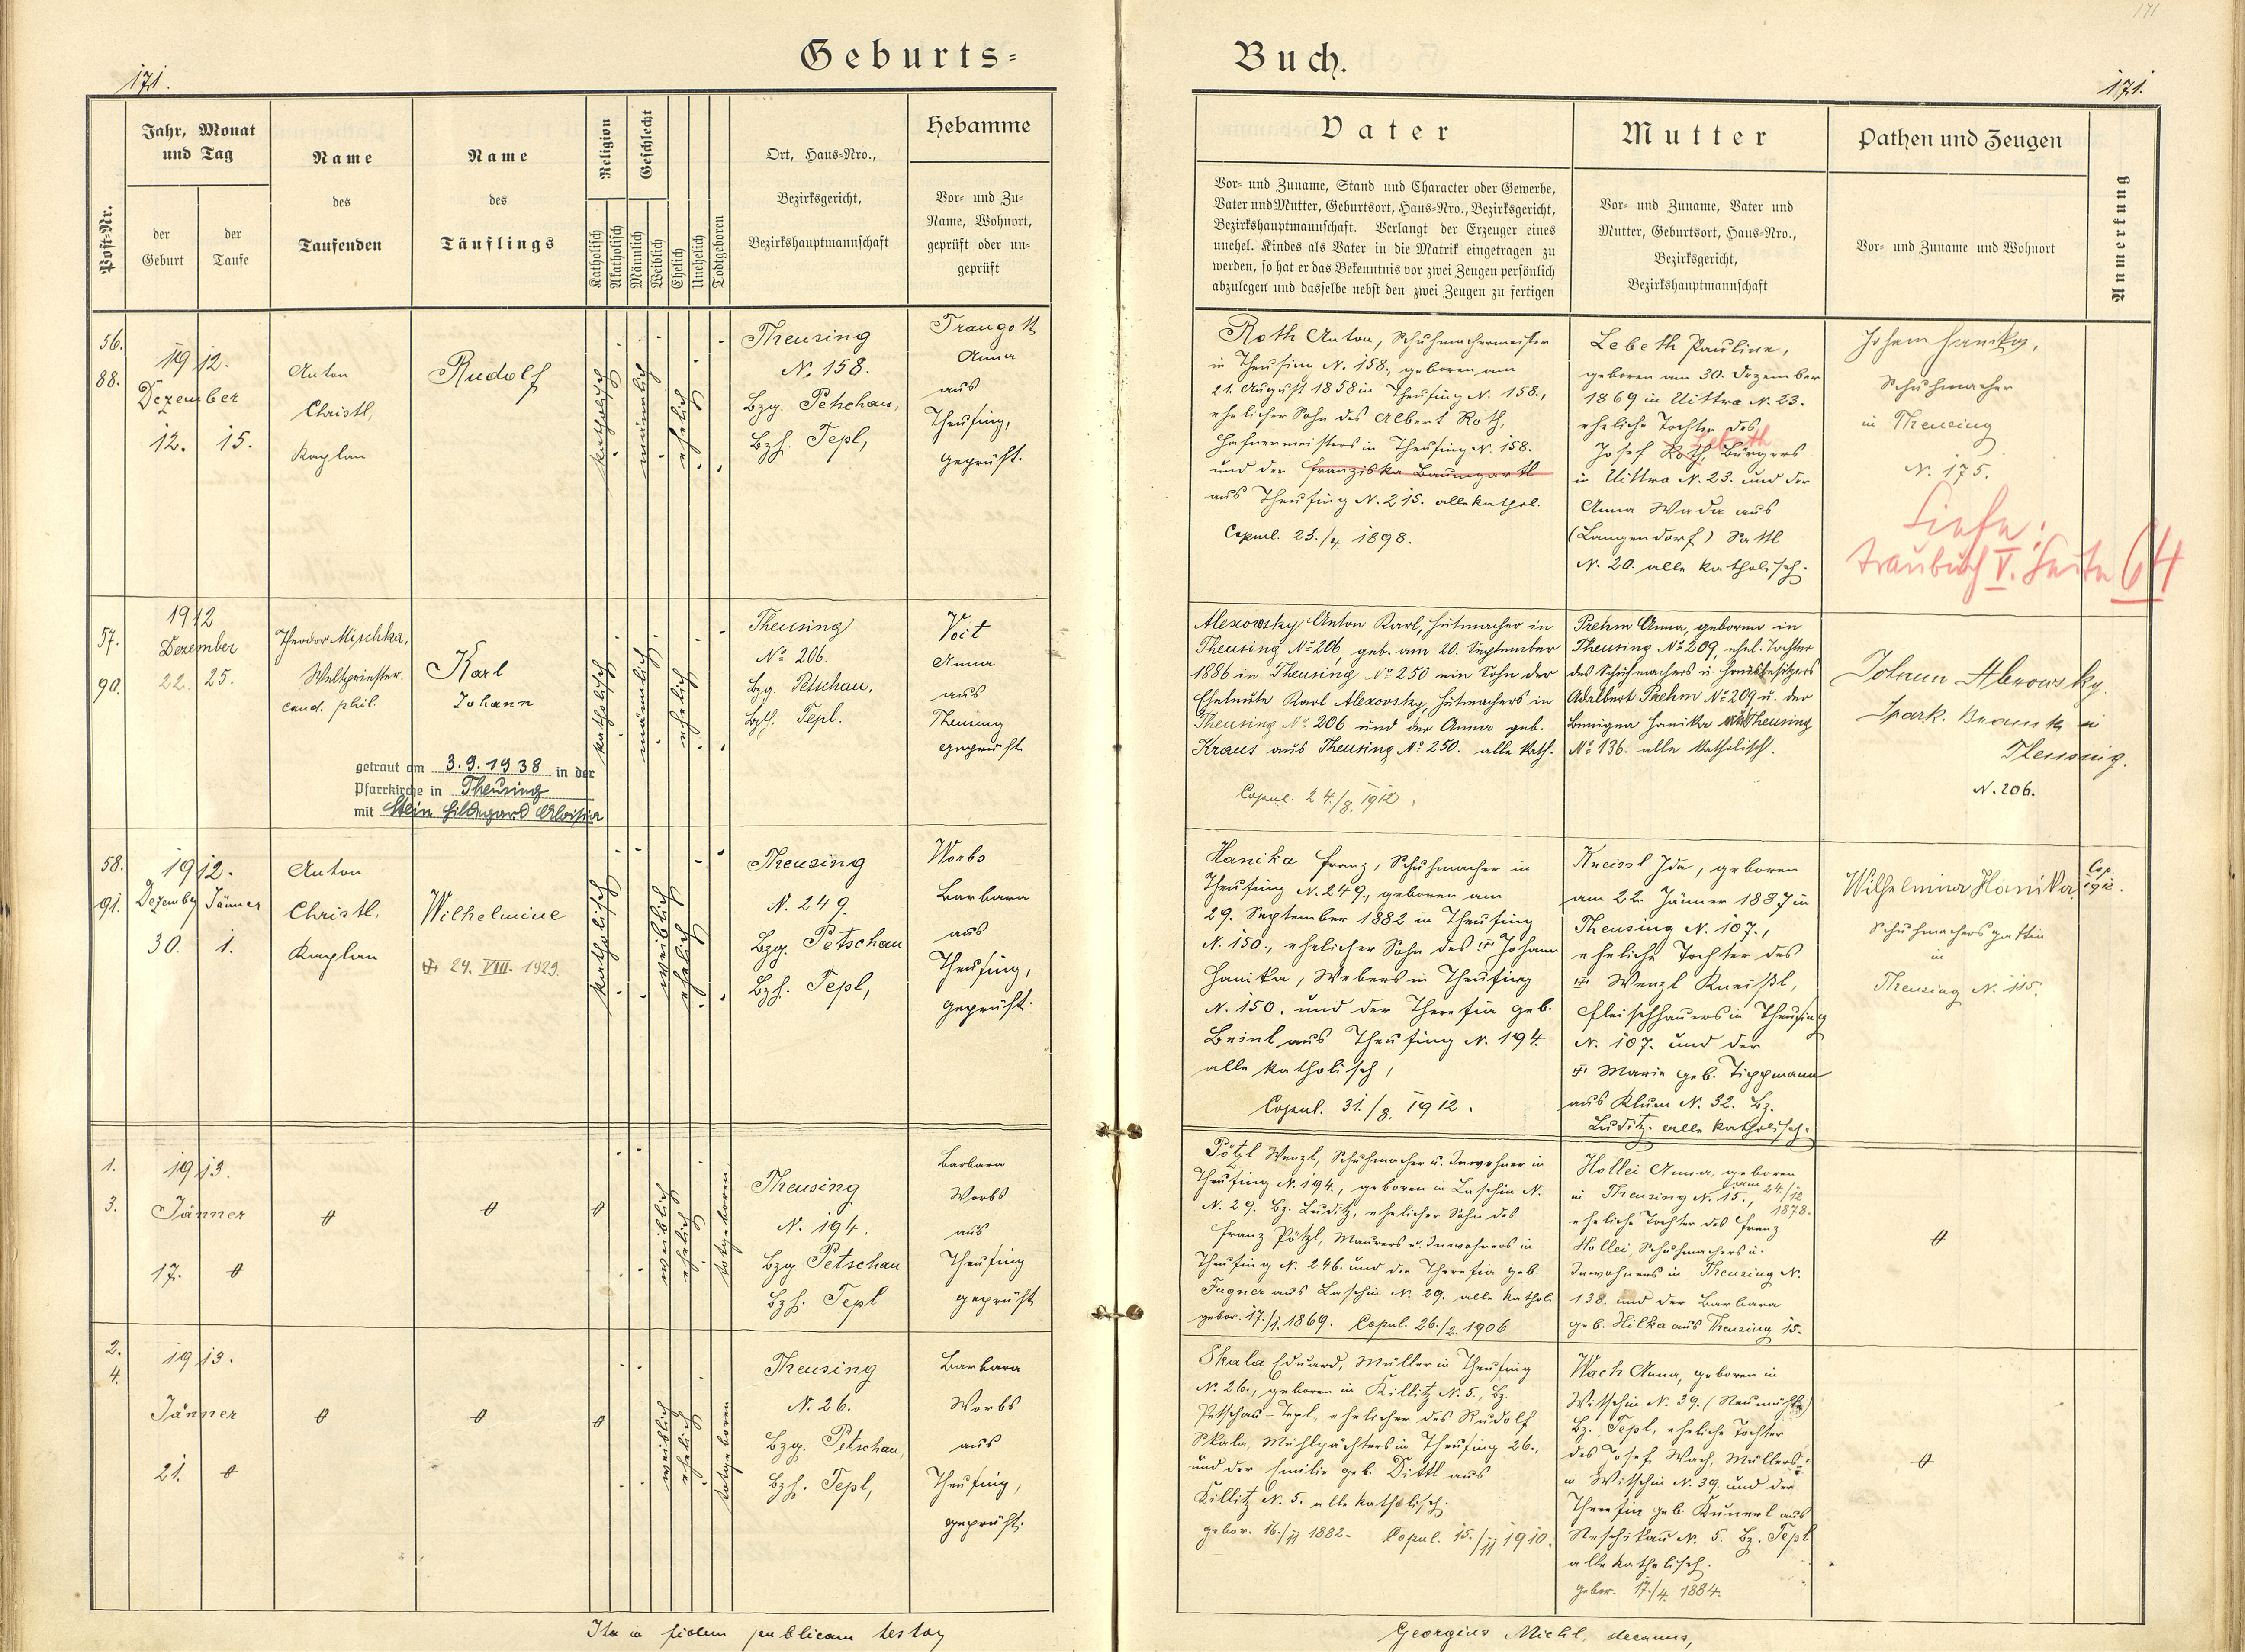 171
Geburts-
Buch.
171.
171.
Post-Nr.
Jahr, Monat
und Tag
der
Geburt
der
Taufe
Name
des
Taufenden
Name
des
Täuflings
Religion
Katholisch
Akatholisch
Geschlecht
Männlich
Weiblich
Ehelich
Unehelich
Todtgeboren
Ort, Haus-Nro.,
Bezirksgericht,
Bezirkshauptmannschaft
Hebamme
Vor- und Zu-
Name, Wohnort,
geprüft oder un-
geprüft
Vater
Vor- und Zuname, Stand und Character oder Gewerbe,
Vater und Mutter, Geburtsort, Haus-Nro., Bezirksgericht,
Bezirkshauptmannschaft. Verlangt der Erzeuger eines
unehel. Kindes als Vater in die Matrik eingetragen zu
werden, so hat er das Bekenntnis vor zwei Zeugen persönlich
abzulegen und dasselbe nebst den zwei Zeugen zu fertigen
Mutter
Vor- und Zuname, Vater und
Mutter, Geburtsort, Haus-Nro.,
Bezirksgericht,
Bezirkshauptmannschaft
Pathen und Zeugen
Vor- und Zuname und Wohnort
Anmerkung
56.
88.
1912.
Dezember
12. 15.
Anton
Christl,
Kaplan
Rudolf
katholisch
männlich
ehelich
Theusing
N. 158.
Bzg. Petschau,
Bzh. Tepl,
Traugott
Anna
aus
Theusing,
geprüft.
Roth Anton, Schuhmachermeister
in Theusing N. 158., geboren am
21. August 1858 in Theusing N. 158.,
ehelicher Sohn des Albert Roth,
Hafnermeisters in Theusing N. 158.
und der Franziska Baumgartl
aus Theusing N. 215. alle kathol.
Copul. 23./4. 1898.
Lebeth Pauline,
geboren am 30. Dezember
1869 in Uittwa N. 23.
eheliche Tochter des
Lebeth
Josef Roth, Bürgers
in Uittwa N. 23. und der
Anna Wada aus
(Langendorf) Sattl
N. 20. alle katholisch.
Schuhmacher
in Theusing
N. 175.
Siehe:
Traubuch V. Seite 64
57.
90.
1912
Dezember
22. 25.
Theodor Mischka,
Weltpriester.
cand. phil.
Karl
Johann
getraut am 3.9.1938 in der
Pfarrkirche in Theusing
mit Stein Hildegard Aloisia
katholisch
männlich
ehelich
Theusing
No 206.
Bzg. Petschau.
Bzh. Tepl.
Voit
Anna
aus
Theusing
geprüft
Alexowsky Anton Karl, Hutmacher in
Theusing No 206, geb. am 20. September
1886 in Theusing No 250 ein Sohn der
Eheleute Karl Alexovsky, Hutmachers in
Theusing No 206 und der Anna geb.
Kraus aus Theusing No 250. alle kath.
Copul. 24./8. 1912.
Prehm Anna, geboren in
Theusing No 209, ehel. Tochter
des Schuhmachers u. Hausbesitzers
Adalbert Prehm No 209 u. der
Benigna Hanika aus Theusing
No 136. alle katholisch.
Spark. Beamte in
Theusing.
N. 206.
58.
91.
1912.
Dezember Jänner
30. 1.
Anton
Christl,
Kaplan
Wilhelmine
24. VIII. 1929.
katholisch
weiblich
ehelich
Theusing
N. 249.
Bzg. Petschau
Bzh. Tepl,
Worbs
Barbara
aus
Theusing,
geprüft.
Hanika Franz, Schuhmacher in
Theusing N. 249., geboren am
29. September 1882 in Theusing
N. 150., ehelicher Sohn des Johann
Hanika, Webers in Theusing
N. 150. und der Theresia geb.
Beinl aus Theusing N. 194.
alle katholisch,
Copul. 31./8. 1912.
Kneissl Ida, geboren
am 22. Jänner 1887 in
Theusing N. 107.,
eheliche Tochter des
Wenzl Kneißl,
Fleischhauers in Theusing
N. 107. und der
Marie geb. Tippmann
aus Klum N. 32. Bz.
Luditz. alle katholisch.
Wilhelmina Hanika,
Schuhmachersgattin
in
Theusing N. 115.
Cop.
1912.
1.
3.
1913.
Jänner
17.
weiblich
ehelich
totgeboren
Theusing
N. 194.
Bzg. Petschau
Bzh. Tepl
Barbara
Worbs
aus
Theusing
geprüft
Pötzl Wenzl, Schuhmacher u. Inwohner in
Theusing N. 194., geboren in Laschin N.
N. 29. Bz. Luditz, ehelicher Sohn des
Franz Pötzl, Maurers u. Inwohners in
Theusing N. 246. und der Theresia geb.
Fugner aus Laschin N. 29. alle kathol.
gebor. 17./1. 1869. Copul. 26./2. 1906
Hollei Anna, geboren
in Theusing N. 15., am 24./12
1878.
eheliche Tochter des Franz
Hollei, Schuhmachers u.
Inwohners in Theusing N.
138. und der Barbara
geb. Hilka aus Theusing 15.
2.
4.
1913.
Jänner
21.
weiblich
ehelich
totgeboren
Theusing
N. 26.
Bzg. Petschau,
Bzh. Tepl,
Barbara
Worbs
aus
Theusing,
geprüft.
Skala Eduard, Müller in Theusing
N. 26., geboren in Killitz N. 5., Bz.
Petschau-Tepl, ehelicher des Rudolf
Skala, Mühlpächters in Theusing 26.,
und der Emilie geb. Dittl aus
Killitz N. 5. alle katholisch.
gebor. 16./11 1882. Copul. 15./11 1910.
Wach Anna, geboren in
Witschin N. 39. (Neumühle)
Bz. Tepl, eheliche Tochter
des Josef Wach, Müllers
in Witschin N. 39. und der
Theresia geb. Kunerl aus
Neschikau N. 5. Bz. Tepl
alle katholisch.
gebor. 17./4. 1884.
Ita in fidem publicam testor
Georgius Michl, decanus,